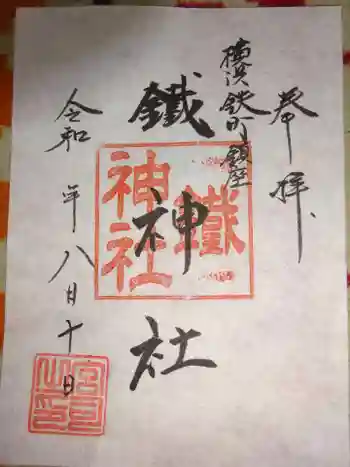 奉拝
横浜鉄町鎮座
鐵神社
鐵
神社
令和 年八月十日
宮司之印